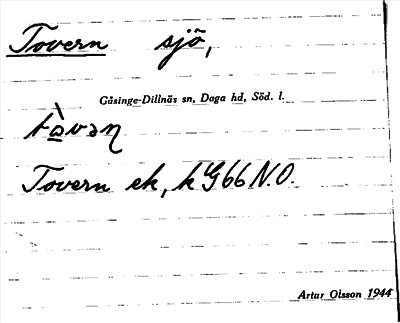 Tovern sjö,
Gåsinge-Dillnäs sn, Daga hd, Söd. l.
tàvən
Tovern ek, k G66 N.O.
Artar Olsson 1944